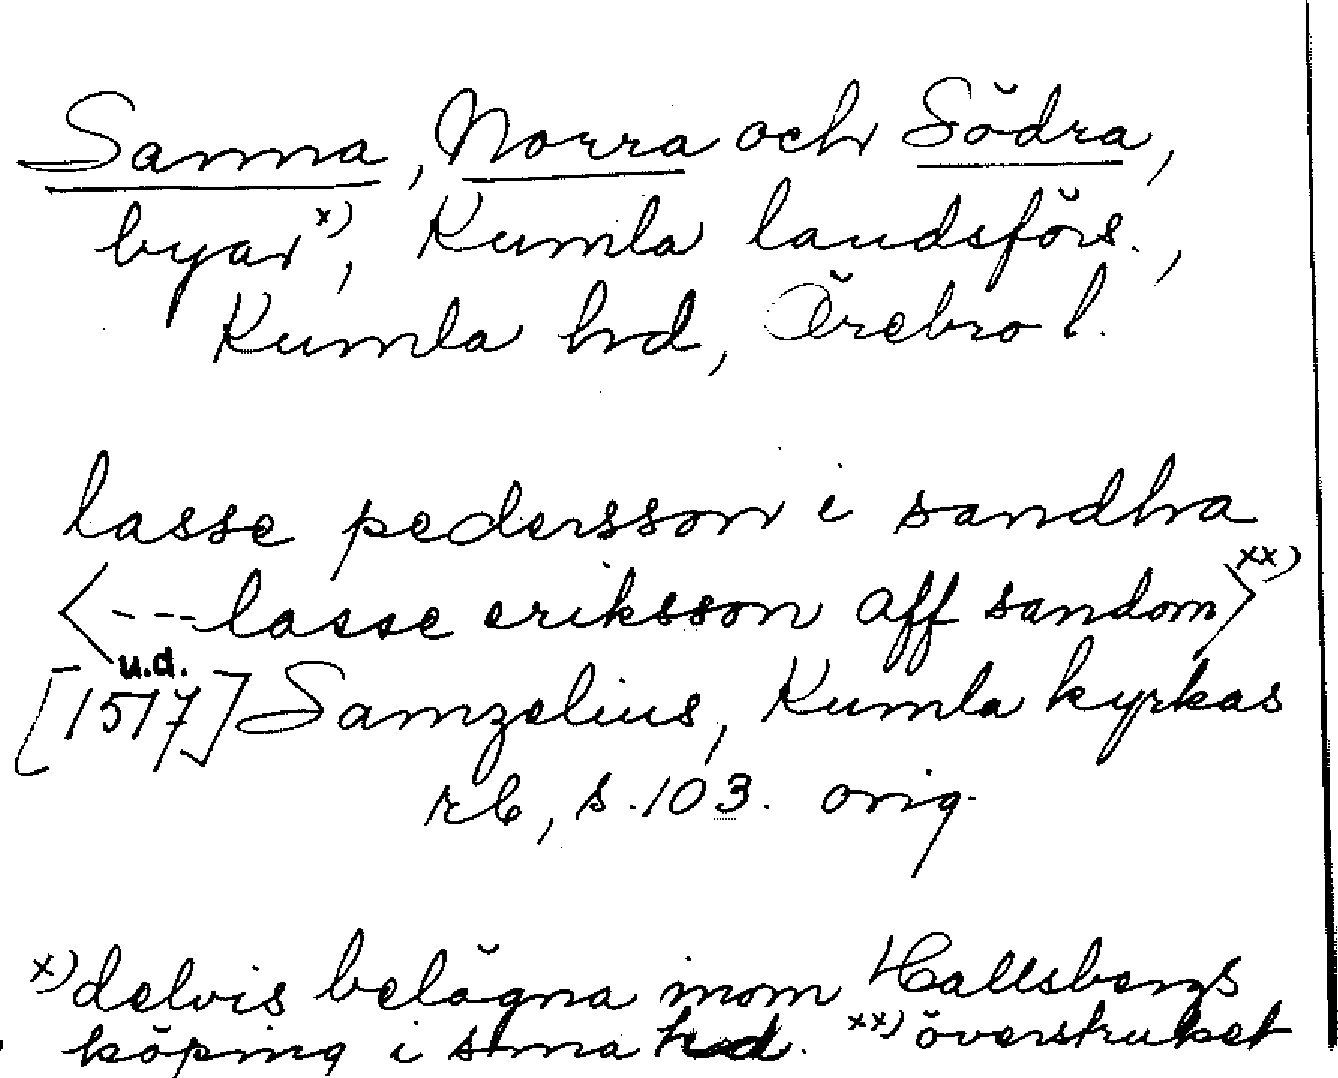 Sanna, Norra och Södra,
byar x), Kumla landsförs.,
Kumla hd, Örebro l.
lasse pedersson i sandha
<---lasse eriksson aff sandom> xx)
u.d.
[1517] Samzelius, Kumla kyrkas
rb, s. 103. orig.
x) delvis belägna inom Hallsbergs
köping i sma hd. xx) överstruket